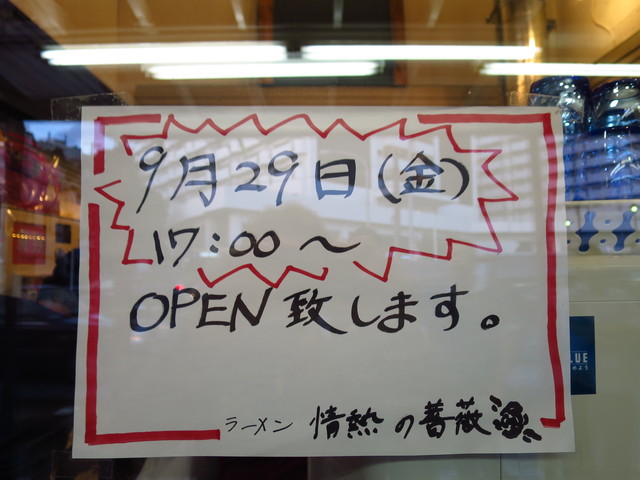 9月29日(金)
17:00～
OPEN致します。
ラーメン 情熱の薔薇
LUE